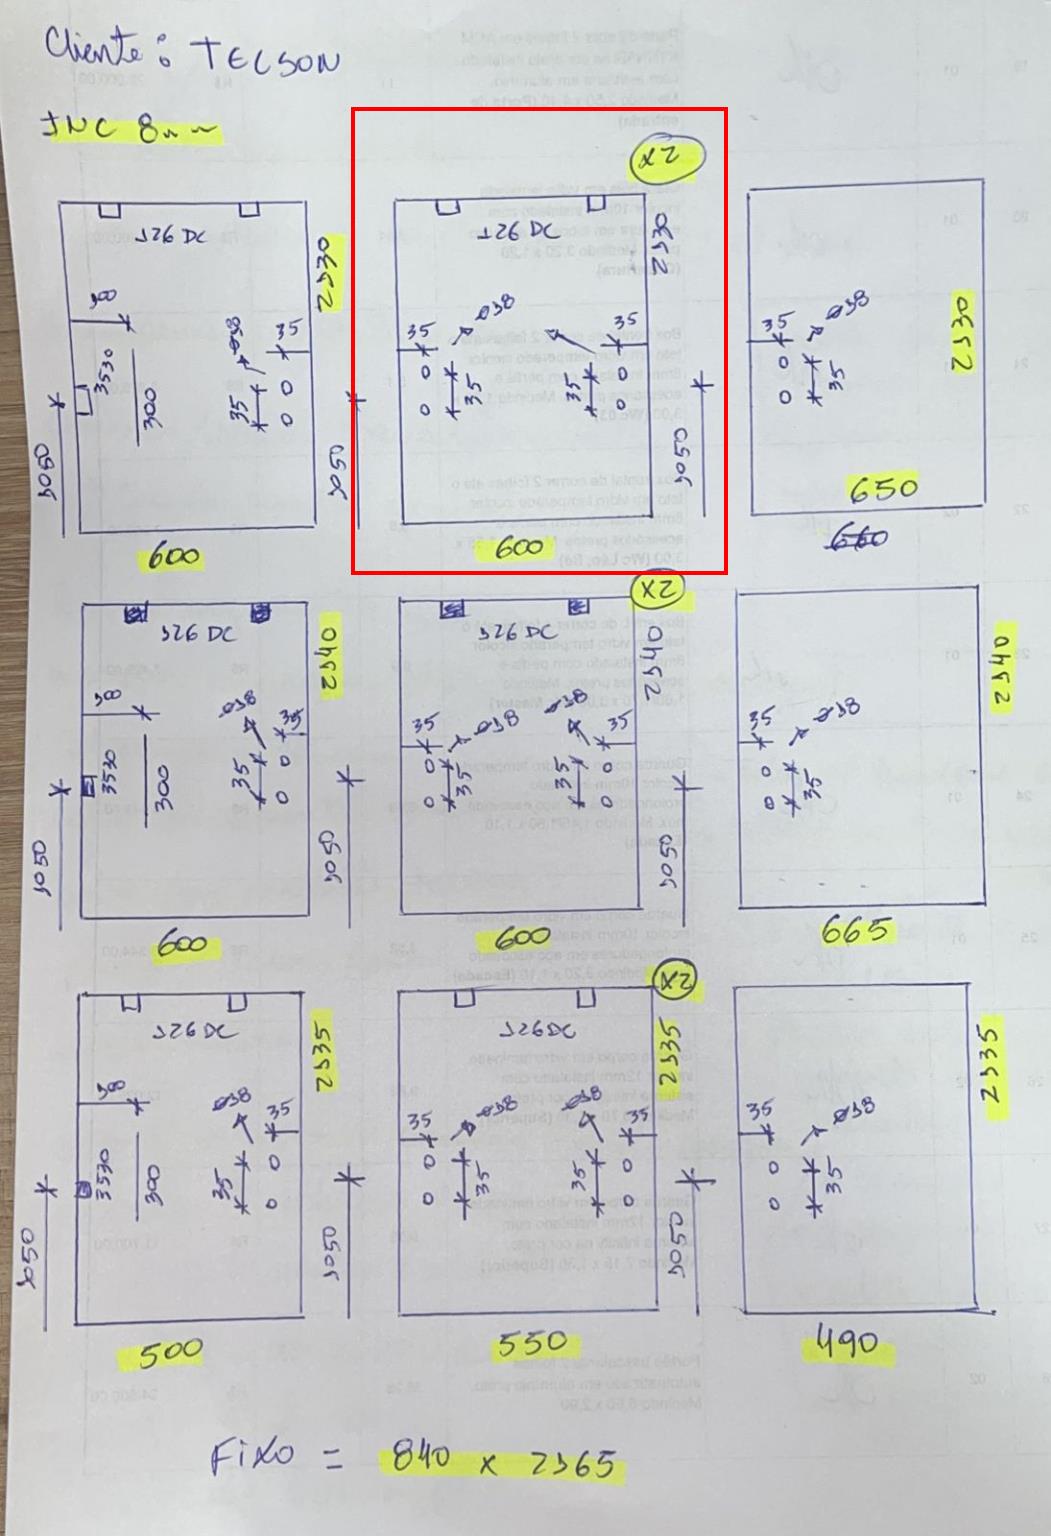 Cliente: TECSON
INC 8mm
x2
126 DC
2130
38
3530
300
Ø38
35
35
1050
600
126 DC
2130
35
Ø38
35
35
35
1050
1050
600
35
Ø38
35
2130
650
660
126 DC
2140
38
3530
300
Ø38
35
35
1050
600
x2
126 DC
2140
35
Ø38
35
Ø38
35
35
1050
1050
600
35
Ø38
35
2140
665
126 DC
2135
38
3530
300
Ø38
35
35
1050
500
x2
126 DC
2135
35
Ø38
35
Ø38
35
35
1050
1050
550
35
Ø38
35
2135
490
FIXO = 840 x 2165